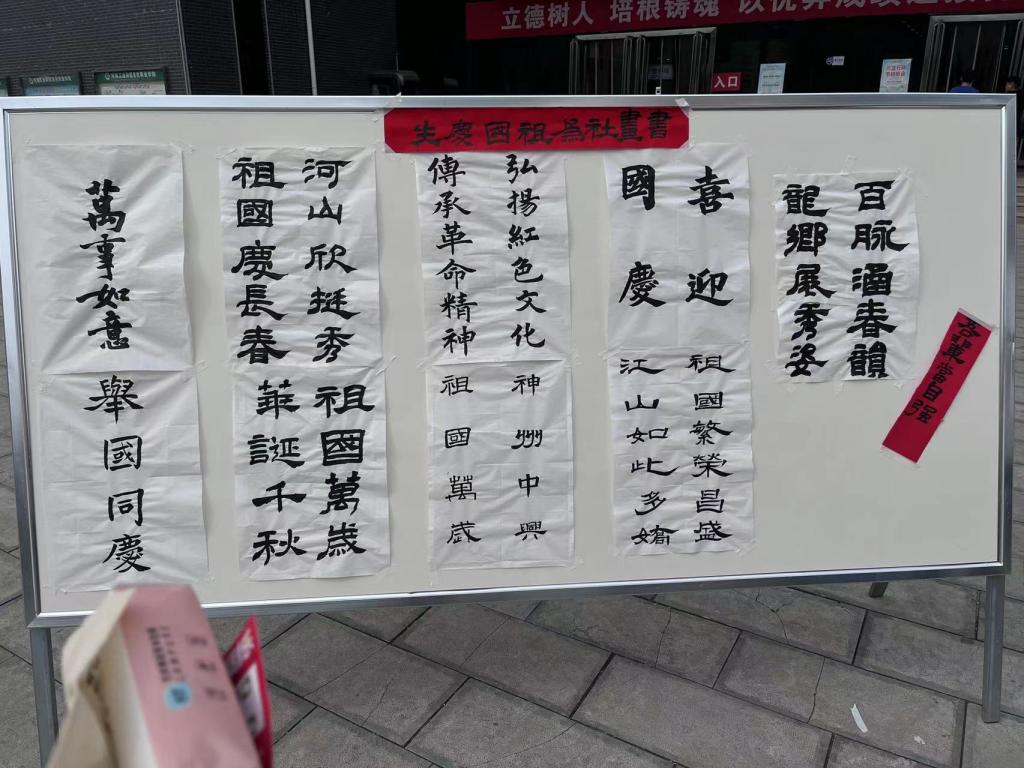 立德树人 培根铸魂 以优异成绩
入口
書畫社為祖国慶生
吾輩當自强
百脉涵春韻
龍鄉展秀姿
喜迎
國慶
祖國繁榮昌盛
江山如此多嬌
弘揚紅色文化
傳承革命精神
神州中興
祖國萬歲
河山欣挺秀
祖國慶長春
祖國萬歲
華誕千秋
萬事如意
舉國同慶